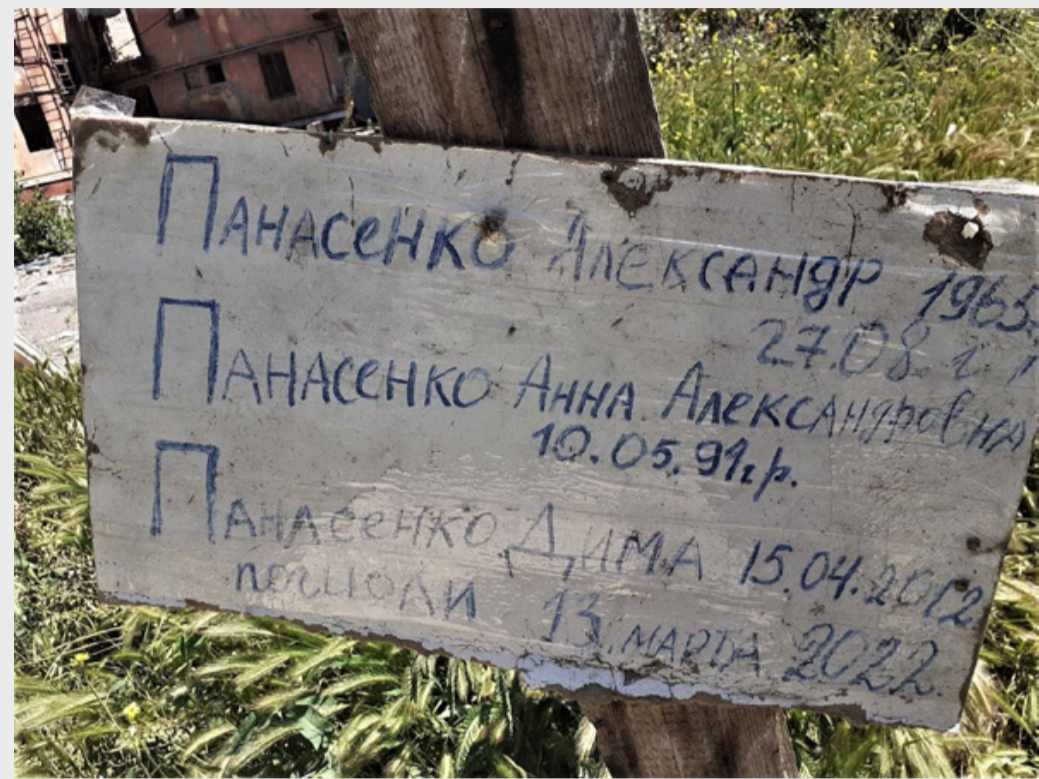 Панасенко Александр 1965
27.08. г.
Панасенко Анна Александровна
10.05.91г.р.
Панасенко Дима 15.04.2012
погибли 13 марта 2022.